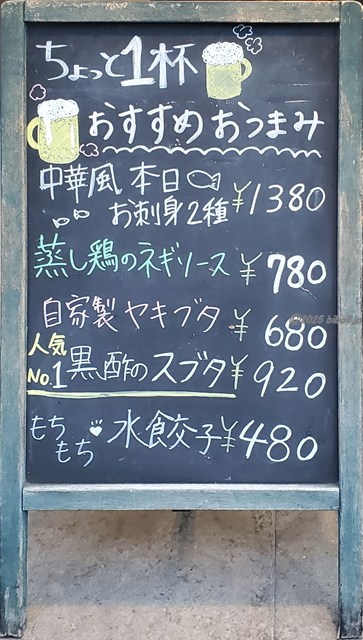 ちょっと1杯
おすすめおつまみ
中華風 本日
お刺身2種 ¥1380
蒸し鶏のネギソース ¥780
自家製ヤキブタ ¥680
人気
No.1 黒酢のスブタ ¥920
もち
もち 水餃子 ¥480
©2025